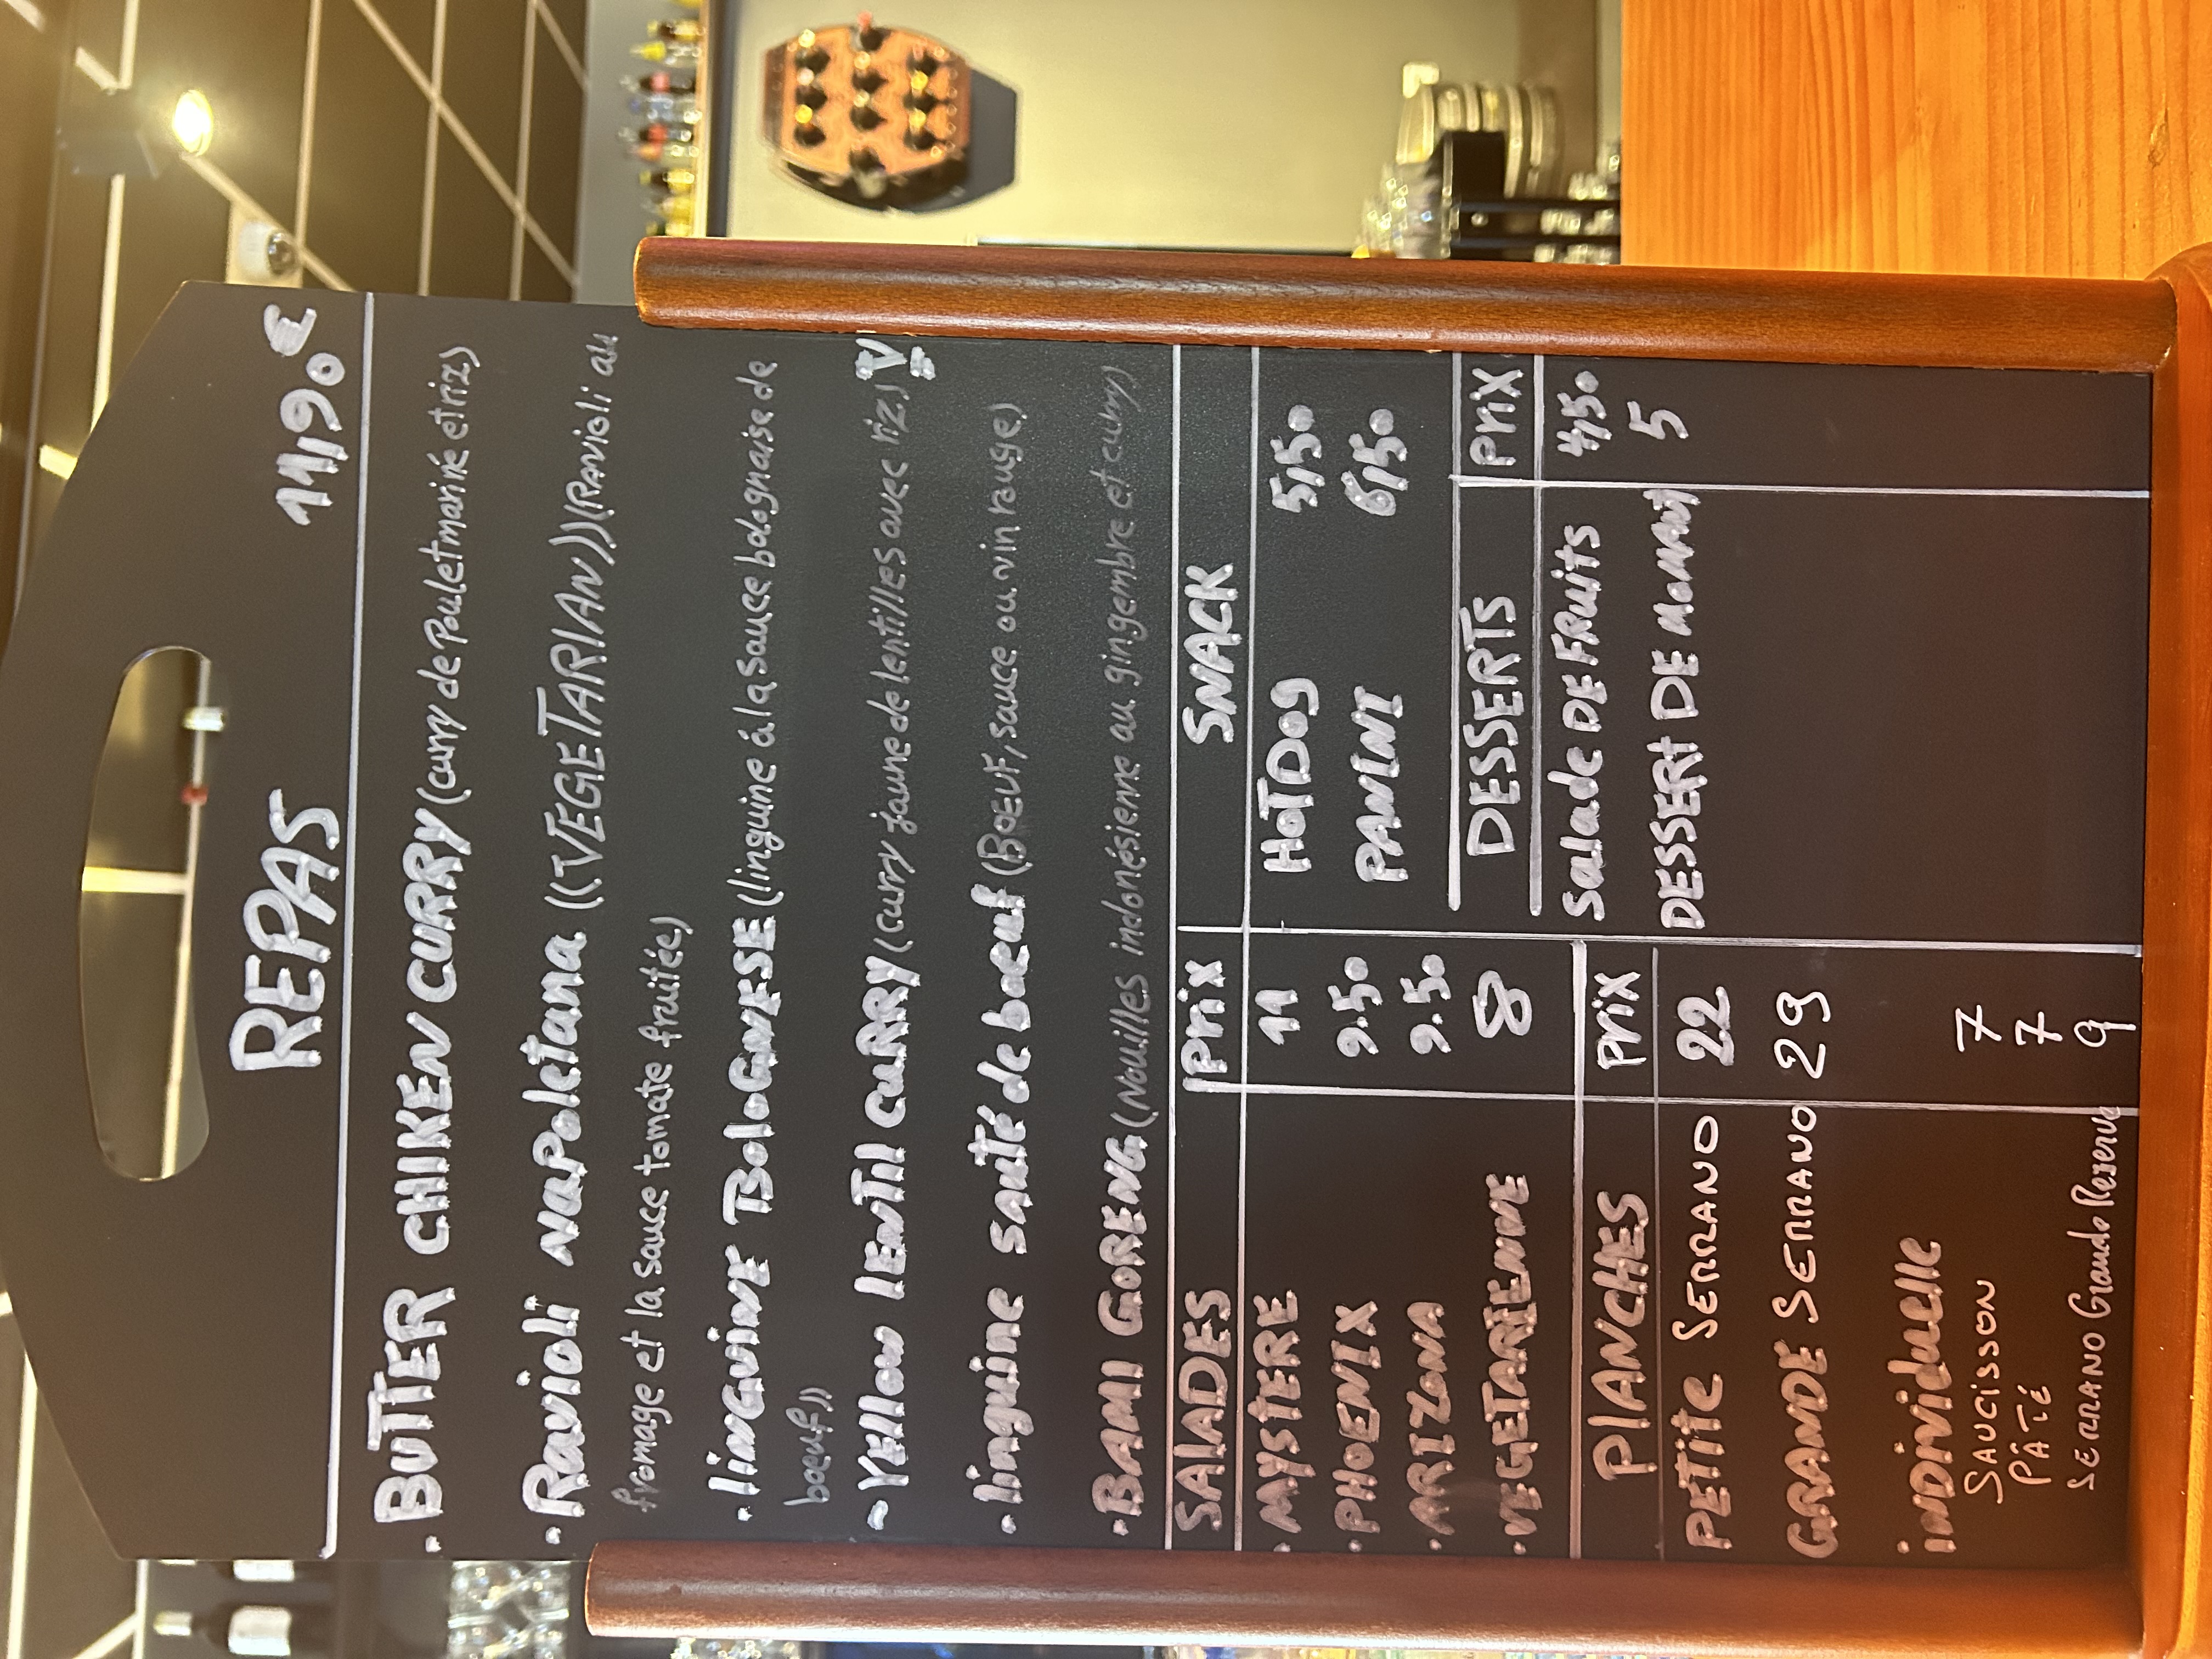 REPAS 11,90€
. BUTTER CHIKEN CURRY (curry de Poulet mariné et riz)
. Ravioli NAPoletana ((VEGETARIAN)) (Ravioli au
fromage et la sauce tomate fruitée)
. linGuinE BoloGNESE (linguine á la sauce bolognaise de
boeuf))
- YEllow lENTil CuRRY (curry jaune de lentilles avec riz) V
. linguine sauté de boeuf (BOEUF, sauce ou vin rouge)
. BAMI GORENG (Nouilles indonésienne au gingembre et curry)
SALADES Prix
. MYSTERE 11
. PHOENIX 9.50
. ARIZONA 9.50
. VEGETARIENNE 8
PLANCHES Prix
PETITE SERRANO 22
GRANDE SERRANO 29
inDividuelle
SAUCISSON 7
PÂTÉ 7
SERRANO Grande Reserve 9
SNACK
HOTDOG 5,50
PANINI 6,50
DESSERTS Prix
Salade DE FRuits 4,50
DESSERT DE Moment 5